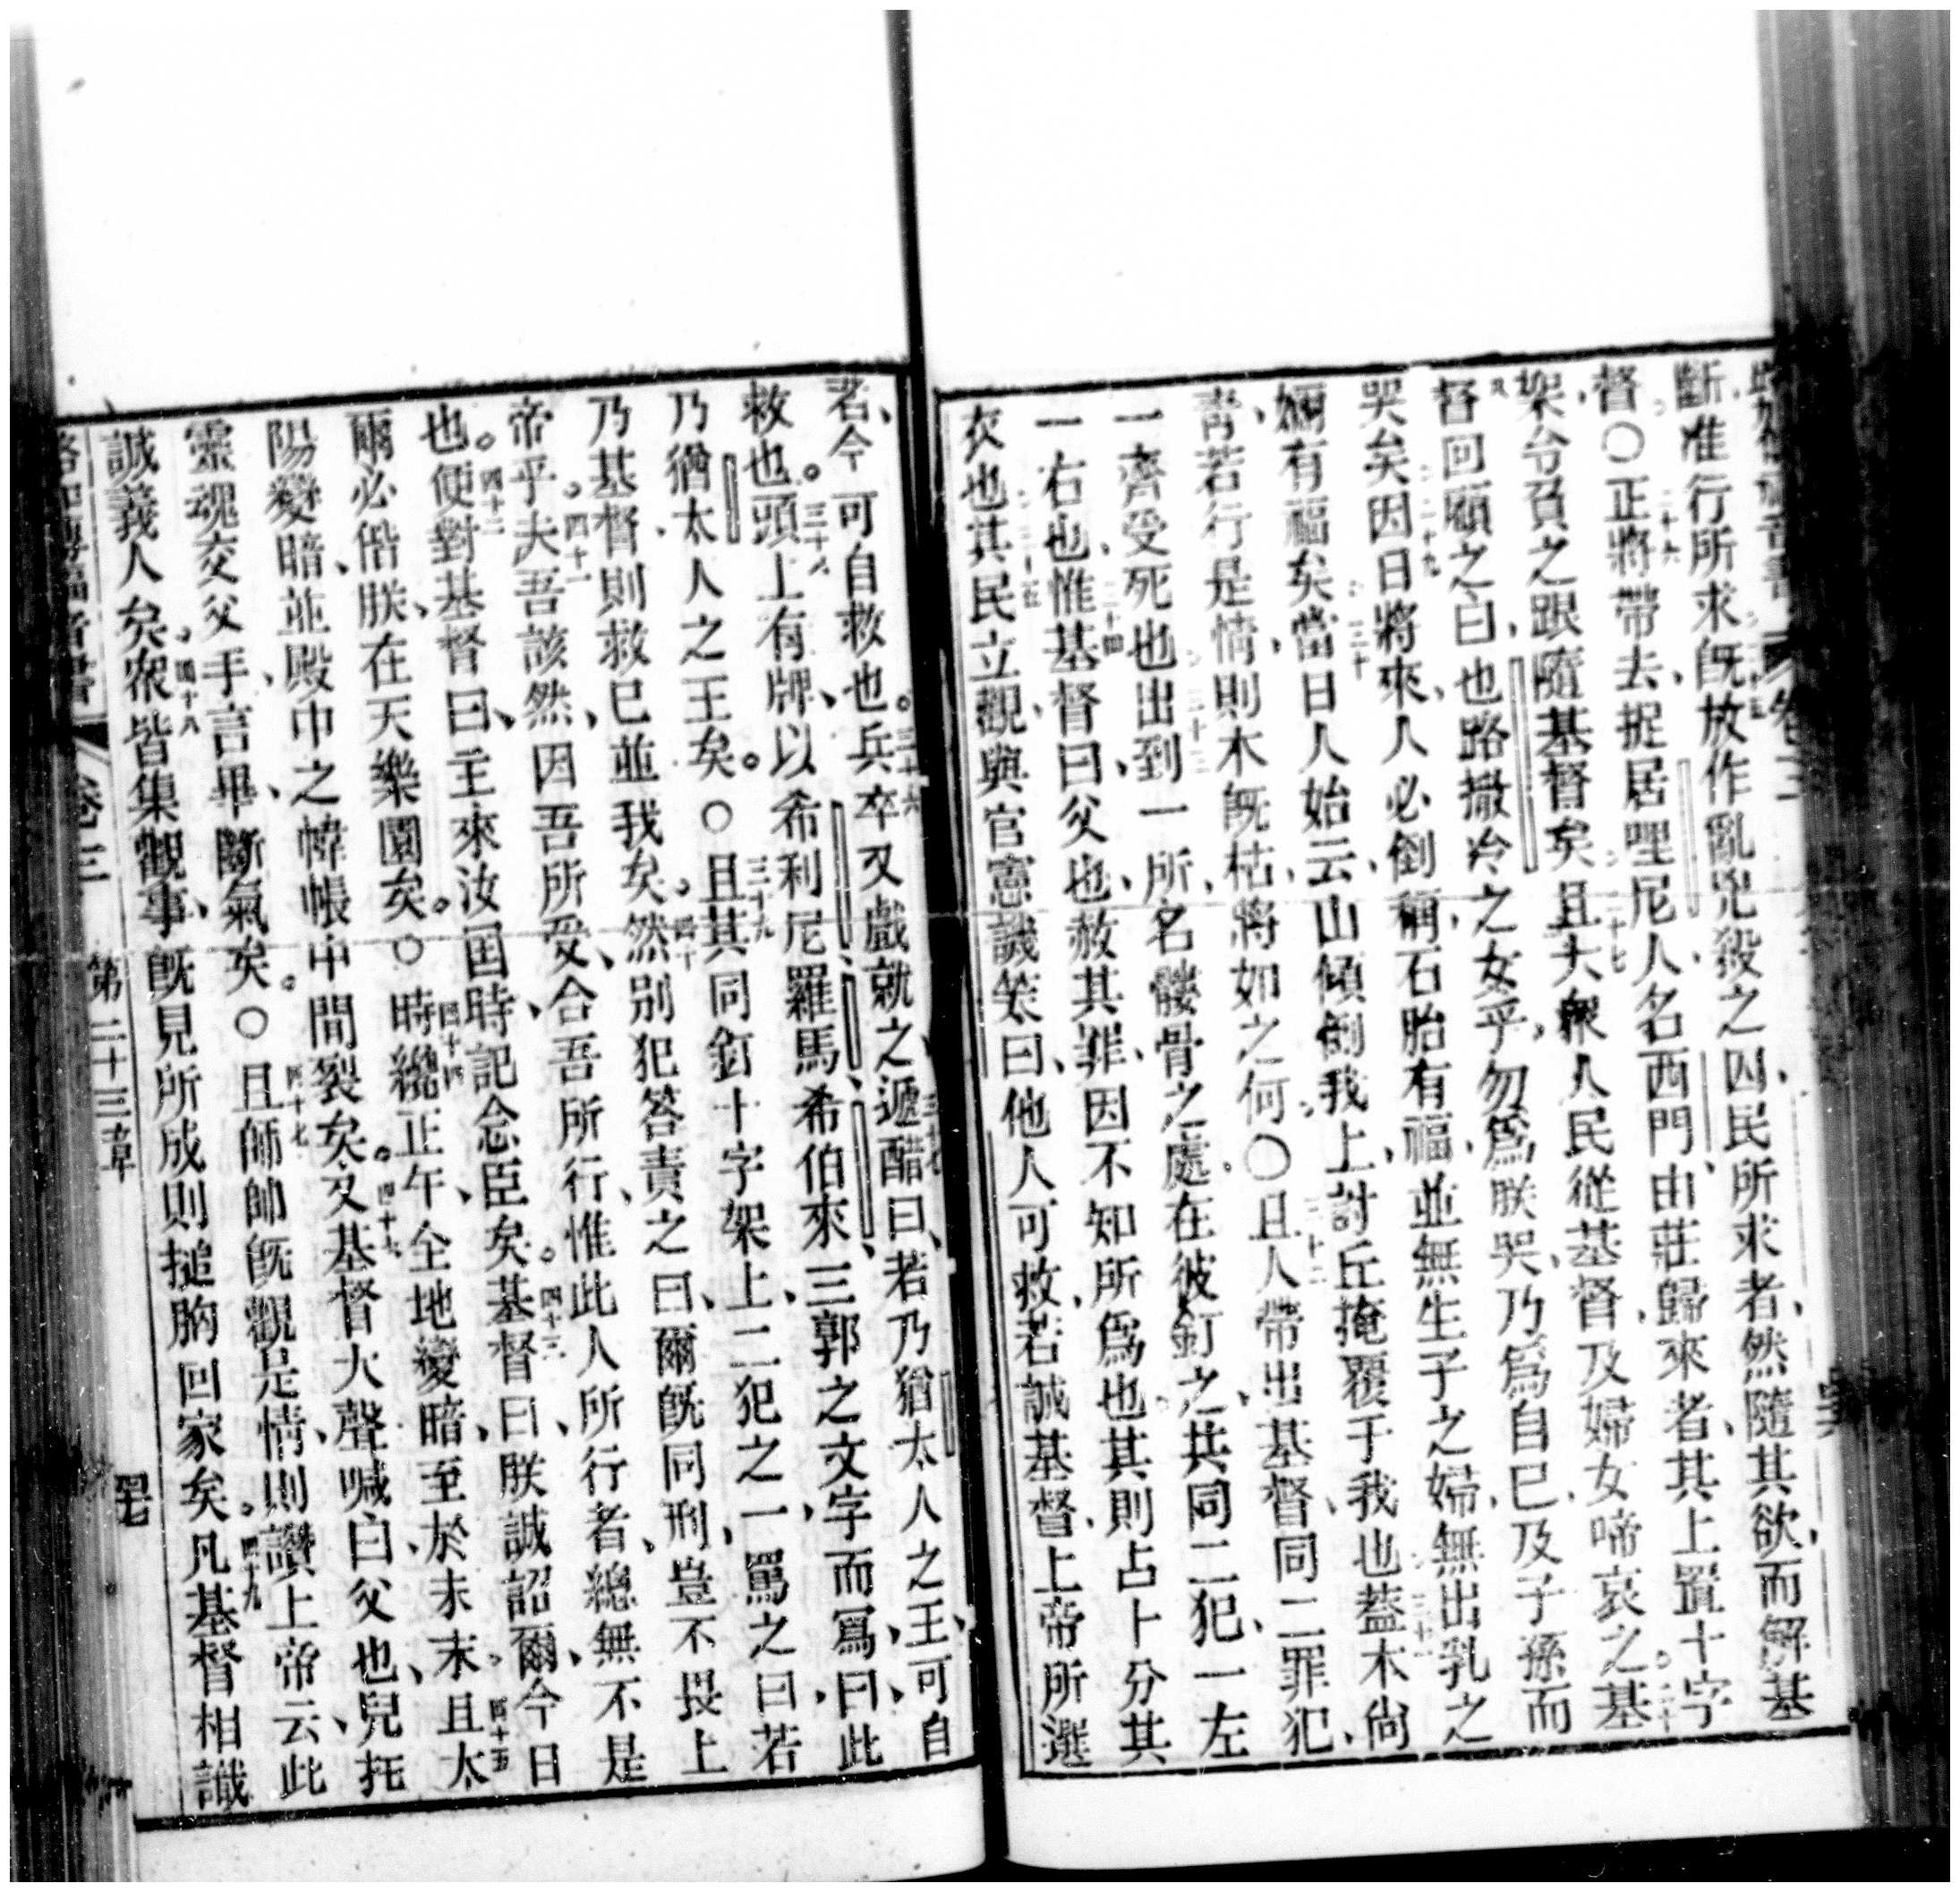 斷准行所求旣放作亂兇殺之囚民所求者然隨其欲而解基
督○正將帶去捉居哩尼人名西門由莊歸來者其上置十字
架令負之跟隨基督矣且大衆人民從基督及婦女啼哀之基
督回顧之曰也路撒冷之女乎勿爲朕哭乃爲自己及子孫而
哭矣因日將來人必倒稱石胎有福並無生子之婦無出乳之
嬭有福矣當日人始云山傾倒我上討丘掩覆于我也蓋木尙
靑若行是情則木旣枯將如之何○且人帶出基督同二罪犯
一齊受死也出到一所名髏骨之處在彼釘之共同二犯一左
一右也惟基督曰父也赦其罪因不知所爲也其則占卜分其
衣也其民立觀與官憲譏笑曰他人可救若誠基督上帝所選
者今可自救也兵卒又戲就之遞醋曰若乃猶太人之王可自
救也頭上有牌以希利尼羅馬希伯來三郭之文字而寫曰此
乃猶太人之王矣○且其同釘十字架上二犯之一罵之曰若
乃基督則救己並我矣然別犯答責之曰爾旣同刑豈不畏上
帝乎夫吾該然因吾所受合吾所行惟此人所行者總無不是
也便對基督曰主來汝囯時記念臣矣基督曰朕誠詔爾今日
爾必偕朕在天樂園矣○時纔正午全地變暗至於未末且太
陽變暗並殿中之幃帳中間裂矣及基督大聲喊曰父也兒托
靈魂交父手言畢斷氣矣○且師帥旣觀是情則讚上帝云此
誠義人矣衆皆集觀事旣見所成則搥胸回家矣凡基督相識
卷三 第二十三章